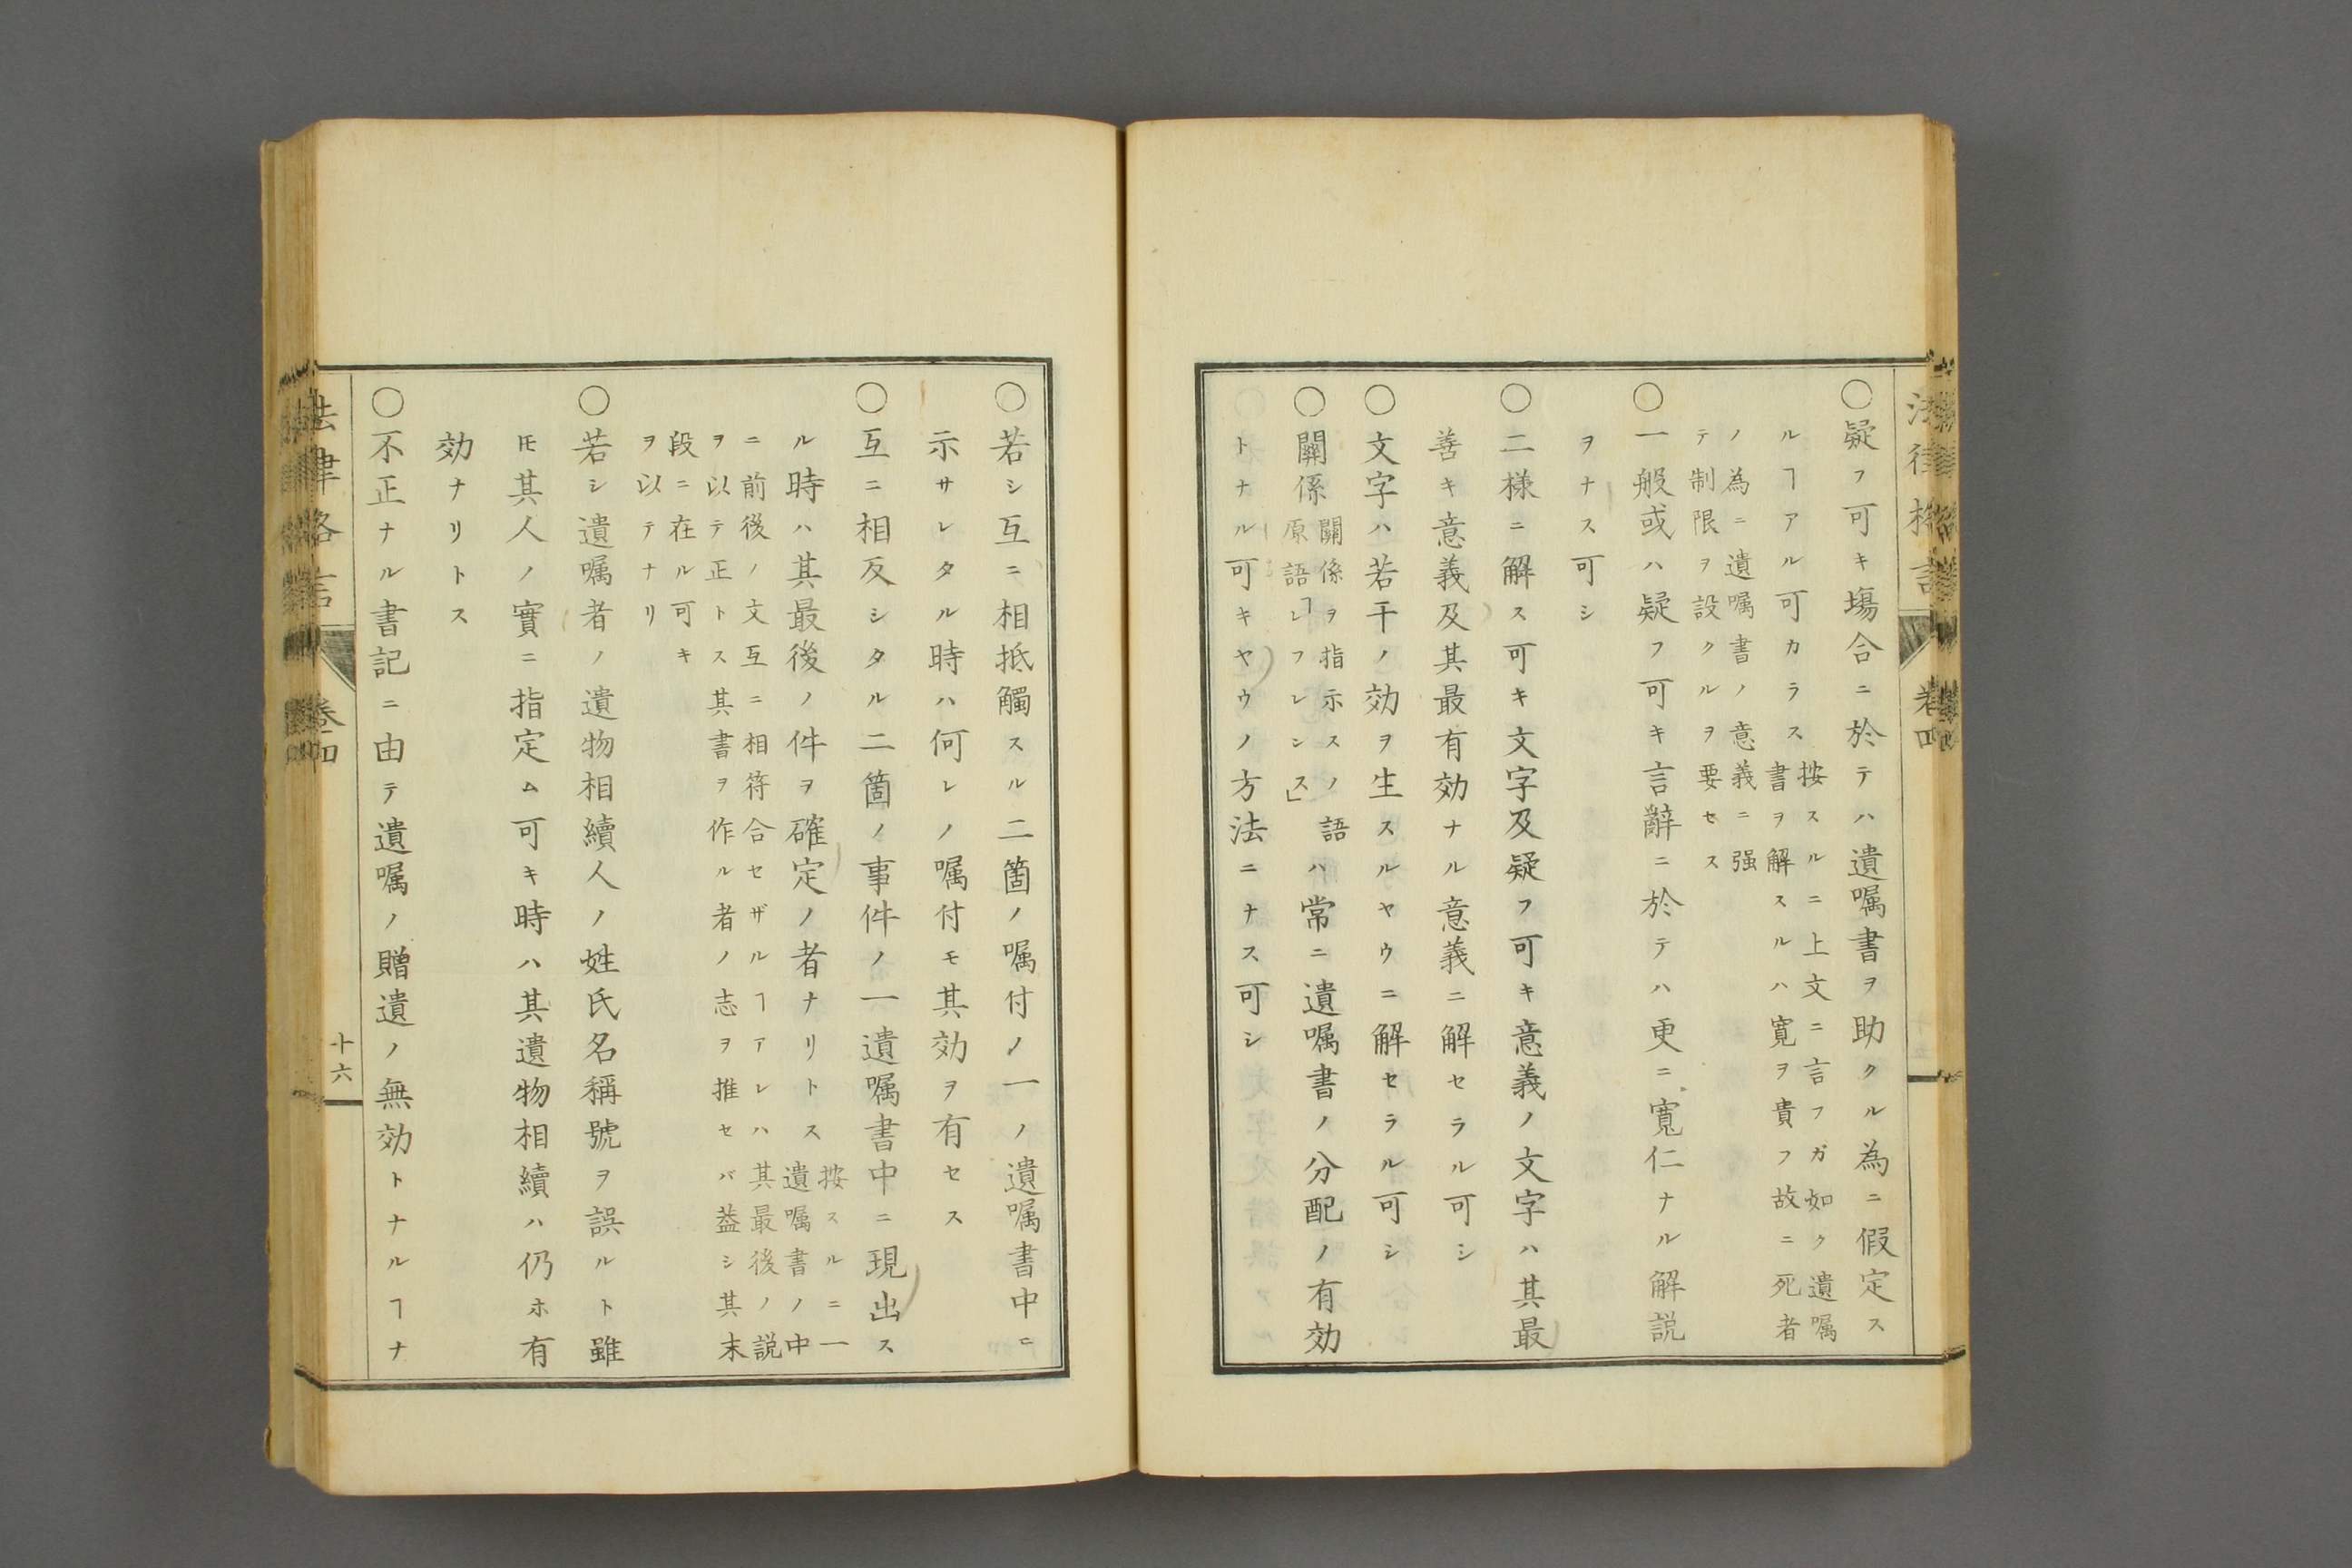 ○疑フ可キ塲合ニ於テハ遺嘱書ヲ助クル為ニ假定ス
ルヿアル可カラス
按スルニ上文ニ言フガ如ク遺嘱
書ヲ解スルハ寛ヲ貴フ故ニ死者
ノ為ニ遺嘱書ノ意義ニ强
テ制限ヲ設クルヲ要セス
○一般或ハ疑フ可キ言辭ニ於テハ更ニ寬仁ナル解説
ヲナス可シ
○二様ニ解ス可キ文字及疑フ可キ意義ノ文字ハ其最
善キ意義及其最有効ナル意義ニ解セラル可シ
○文字ハ若干ノ効ヲ生スルヤウニ解セラル可シ
○關係
關係ヲ指示スノ語
原語「レフレシス」
ハ常ニ遺嘱書ノ分配ノ有効
トナル可キヤウノ方法ニナス可シ
法律格言
卷四
○若シ互ニ相抵觸スル二箇ノ嘱付ノ一ノ遺嘱書中ニ
示サレタル時ハ何レノ嘱付モ其効ヲ有セス
○互ニ相反シタル二箇ノ事件ノ一遺嘱書中ニ現出ス
ル時ハ其最後ノ件ヲ確定ノ者ナリトス
按スルニ一
遺嘱書ノ中
ニ前後ノ文互ニ相符合セザルヿアレハ其最後ノ説
ヲ以テ正トス其書ヲ作ル者ノ志ヲ推セバ葢シ其末
段ニ在ル可キ
ヲ以テナリ
○若シ遺嘱者ノ遺物相續人ノ姓氏名稱號ヲ誤ルト雖
𪜈其人ノ實ニ指定ム可キ時ハ其遺物相續ハ仍ホ有
効ナリトス
○不正ナル書記ニ由テ遺嘱ノ贈遺ノ無効トナルヿナ
法律格言
卷四
十六